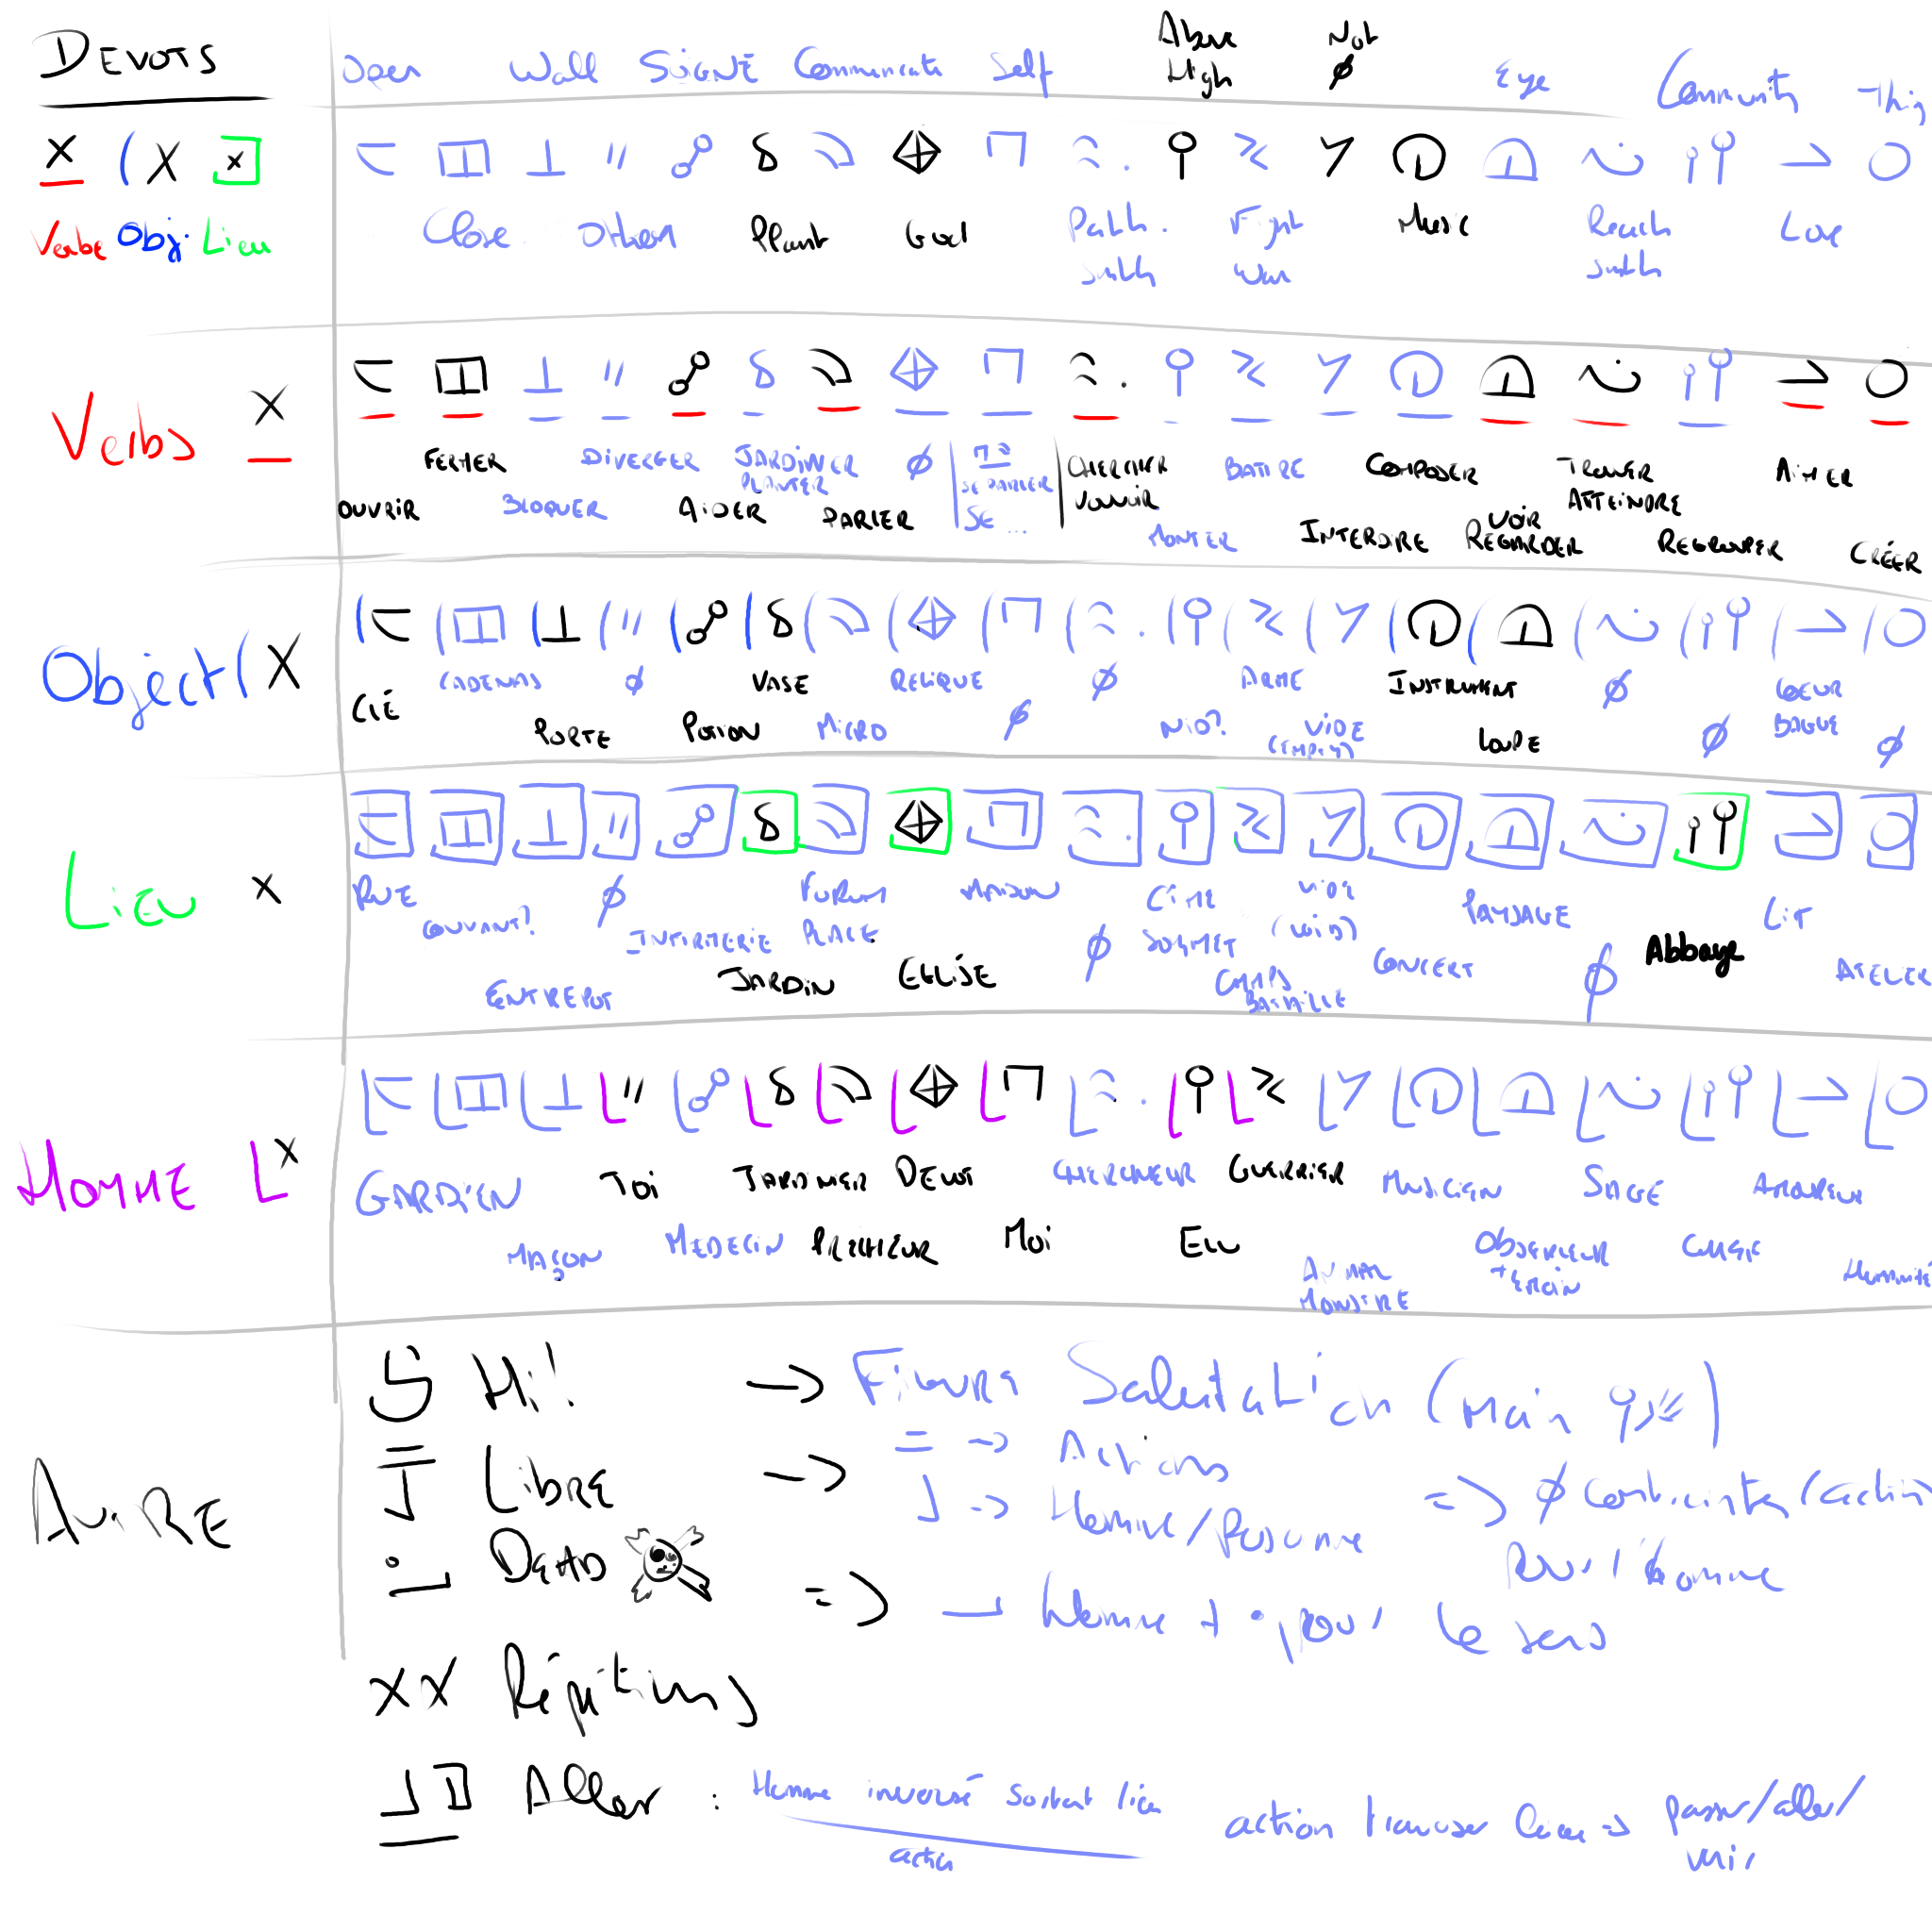 DEVOTS
Open Wall SOIGNÉ Communicate Self Above High Not Ø Eye Community Thing
X (X X
Verbe Obj. Lieu
Close Other Plant God Path. Fight War Music Reach Love
Verbs X
FERMER DIVERGER JARDINER PLANTER Ø SE PARLER CHERCHER BATIRE COMPOSER TROUVER ATTEINDRE AIMER
OUVRIR BLOQUER AIDER PARLER SE ... VOULOIR MONTER INTERDIRE VOIR REGARDER REGROUPER CRÉER
Object (X
CADENAS Ø VASE RELIQUE Ø ARME INSTRUMENT Ø COEUR BAGUE
CLÉ PORTE POTION MICRO Ø NID? VIDE (EMPTY) LOUPE Ø Ø
LIEU X
RUE Ø FORUM PLACE MAISON CIME SOMMET VIDE (VOID) PAYSAGE LIT
COUVANT? INFIRMERIE Ø CONCERT Abbaye
ENTREPOT JARDIN EGLISE CHAMPS BATAILLE Ø ATELIER
HOMME L X
GARDIEN TOI JARDINIER DEVOT CHERCHEUR GUERRIER MUSICIEN SAGE AMOUREUX
MAÇON MEDECIN PRECHEUR MOI ELU ANIMAL MONSTRE OBSERVEUR TEMOIN Humanité
AUTRE
Hi! → Figure Salutation (Main)
= → Actions
LIBRE → Homme/Personne => Ø Contrainte (action
pour l'homme
DEAD => Homme + . pour le sens
XX Répétitions
Aller : Homme inversé sortant lieu
action
action traverser lieu => passer/aller/
venir